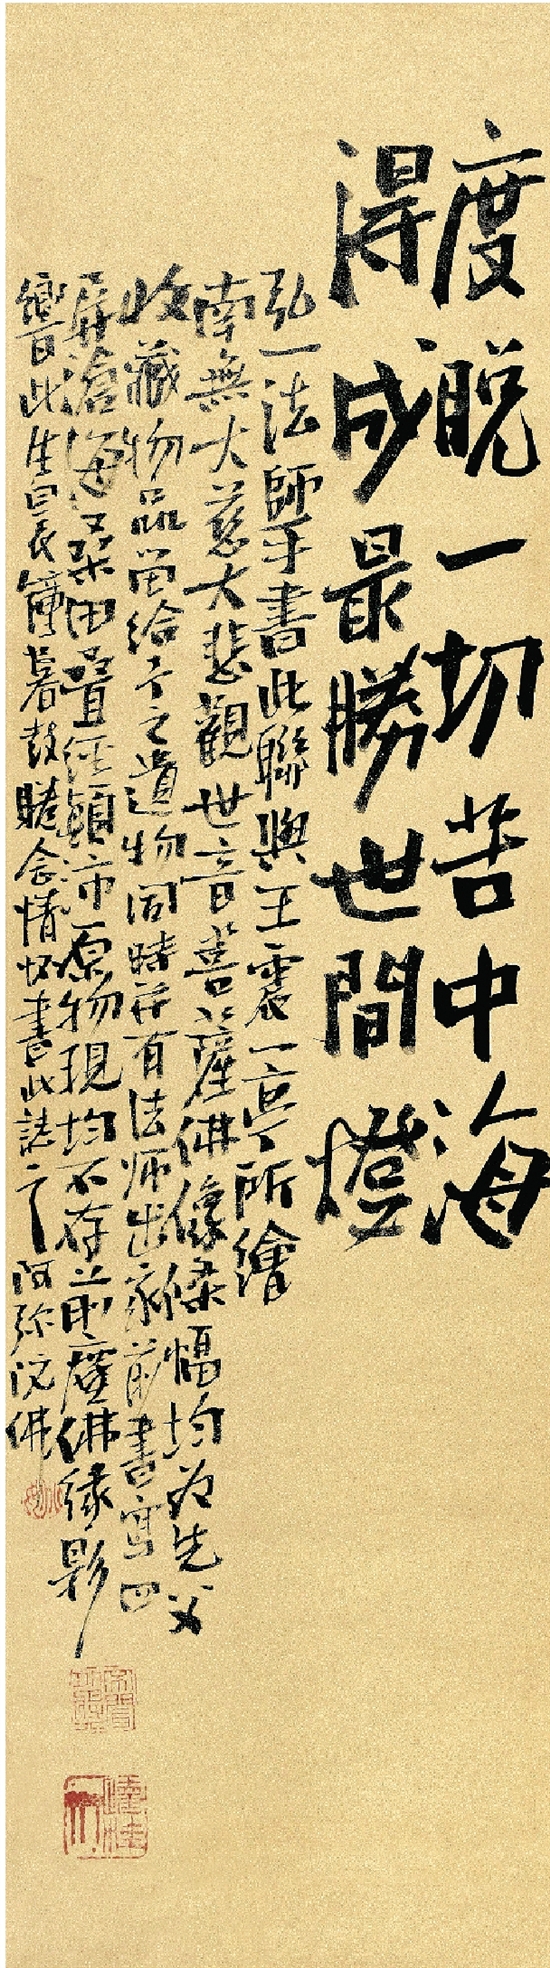 度脱一切苦中海
得成最勝世間燈
弘一法師手書此聯與王震一亭所繪
南無大慈大悲觀世音菩薩佛像條幅均為先父
收藏物品留給予之遺物同時并有法师出家前書寫四
屏滄海桑田疊經顛沛原物現均不存前塵佛緣影
響此生晨鐘暮鼓睠念情怀書此誌之阿弥陀佛